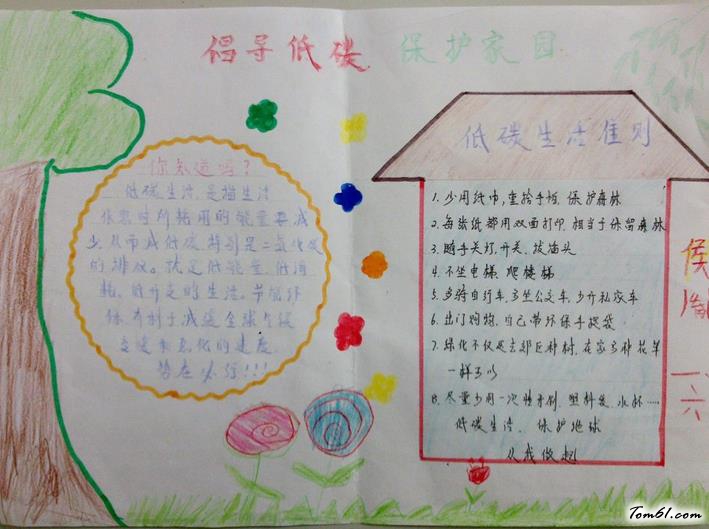 倡导低碳 保护家园
你知道吗?
低碳生活,是指生活
作息时所耗用的能量要减
少,从而减低碳,特别是二氧化碳
的排放。就是低能量、低消
耗、低开支的生活。节能环
保,有利于减缓全球气候
变暖和恶化的速度,
势在必行!!!
低碳生活准则
1. 少用纸巾,重拾手帕,保护森林
2. 每张纸都用双面打印,相当于保留森林
3. 随手关灯,开关、拔插头
4. 不坐电梯 爬楼梯
5. 多骑自行车,多坐公交车,少开私家车
6. 出门购物,自己带环保手提袋
7. 绿化不仅是去郊区种树,在家多种花草
一样可以
8. 尽量少用一次性牙刷、塑料袋、水杯……
低碳生活、保护地球
从我做起
一
六
Tom61.com